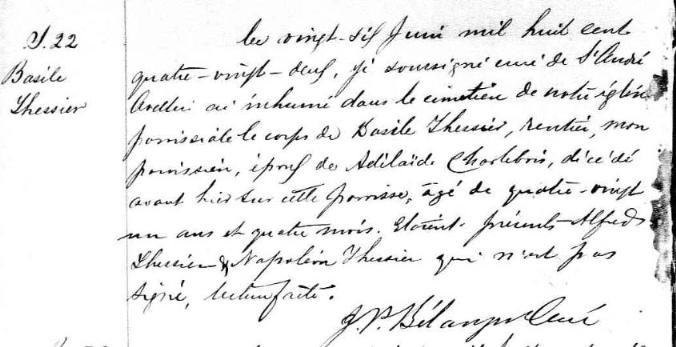 S. 22
Basile
Thessier
Le vingt-six Juin mil huit cent
quatre-vingt-deux, je soussigné curé de St André
Avellin ai inhumé dans le cimetière de notre église
paroissiale le corps de Basile Thessier, rentier, mon
paroissien, époux de Adélaïde Charlebois, décédé
avant hier sur cette paroisse, âgé de quatre-vingt
un ans et quatre mois. Etaient présents Alfred
Thessier & Napoléon Thessier qui n'ont pas
signé, lecture faite.
J. Bélanger Curé